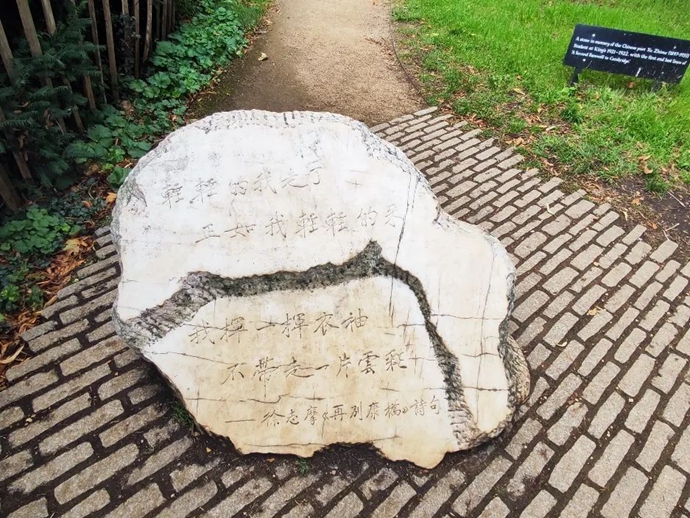 輕輕的我走了
正如我輕輕的來
我揮一揮衣袖
不帶走一片雲彩
——徐志摩《再別康橋》詩句
A stone in memory of the Chinese poet Xu Zhimo (1897-1931)
Student at King's 1921-1922, with the first and last lines of
'A Second Farewell to Cambridge'